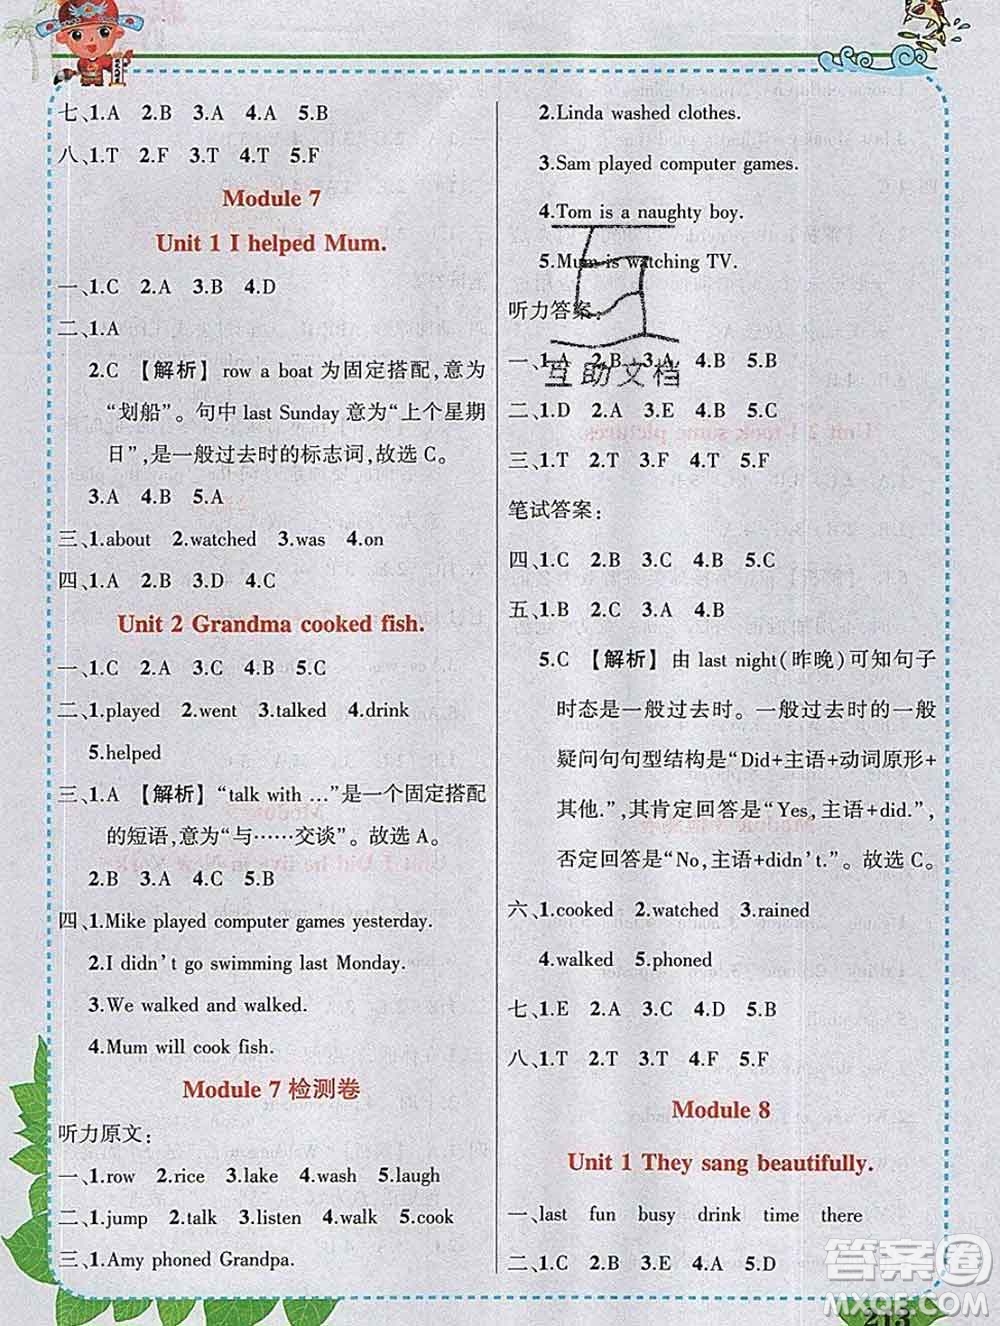 七、1.A 2.B 3.A 4.A 5.B
八、1.T 2.F 3.T 4.T 5.F
Module 7
Unit 1 I helped Mum.
一、1.C 2.A 3.B 4.D
二、1.A
2.C 【解析】row a boat 为固定搭配,意为
“划船”。句中 last Sunday 意为“上个星期
日”,是一般过去时的标志词,故选 C。
3.A 4.B 5.A
三、1.about 2.watched 3.was 4.on
四、1.A 2.B 3.D 4.C
Unit 2 Grandma cooked fish.
一、1.C 2.A 3.C 4.B 5.C
二、1.played 2.went 3.talked 4.drink
5.helped
三、1.A 【解析】“talk with …”是一个固定搭配
的短语,意为“与……交谈”。故选 A。
2.B 3.A 4.C 5.B
四、1.Mike played computer games yesterday.
2.I didn't go swimming last Monday.
3.We walked and walked.
4.Mum will cook fish.
Module 7 检测卷
听力原文:
一、1.row 2.rice 3.lake 4.wash 5.laugh
二、1.jump 2.talk 3.listen 4.walk 5.cook
三、1.Amy phoned Grandpa.
2.Linda washed clothes.
3.Sam played computer games.
4.Tom is a naughty boy.
5.Mum is watching TV.
听力答案:
一、1.A 2.B 3.A 4.B 5.B
二、1.D 2.A 3.E 4.B 5.C
三、1.T 2.F 3.T 4.F 5.F
笔试答案:
四、1.C 2.B 3.A 4.C 5.B
五、1.B 2.C 3.A 4.B
5.C 【解析】由 last night(昨晚)可知句子
时态是一般过去时。一般过去时的一般
疑问句句型结构是“Did+主语+动词原形+
其他.”,其肯定回答是“Yes,主语+did.”
否定回答是“No,主语+didn't.”。故选 C。
六、1.cooked 2.watched 3.rained
4.walked 5.phoned
七、1.E 2.A 3.C 4.D 5.B
八、1.T 2.F 3.T 4.F 5.F
Module 8
Unit 1 They sang beautifully.
一、last fun busy drink time there
二、1.C 2.B 3.C 4.A 5.D
互助文档
答案圈
MXQE.COM
213